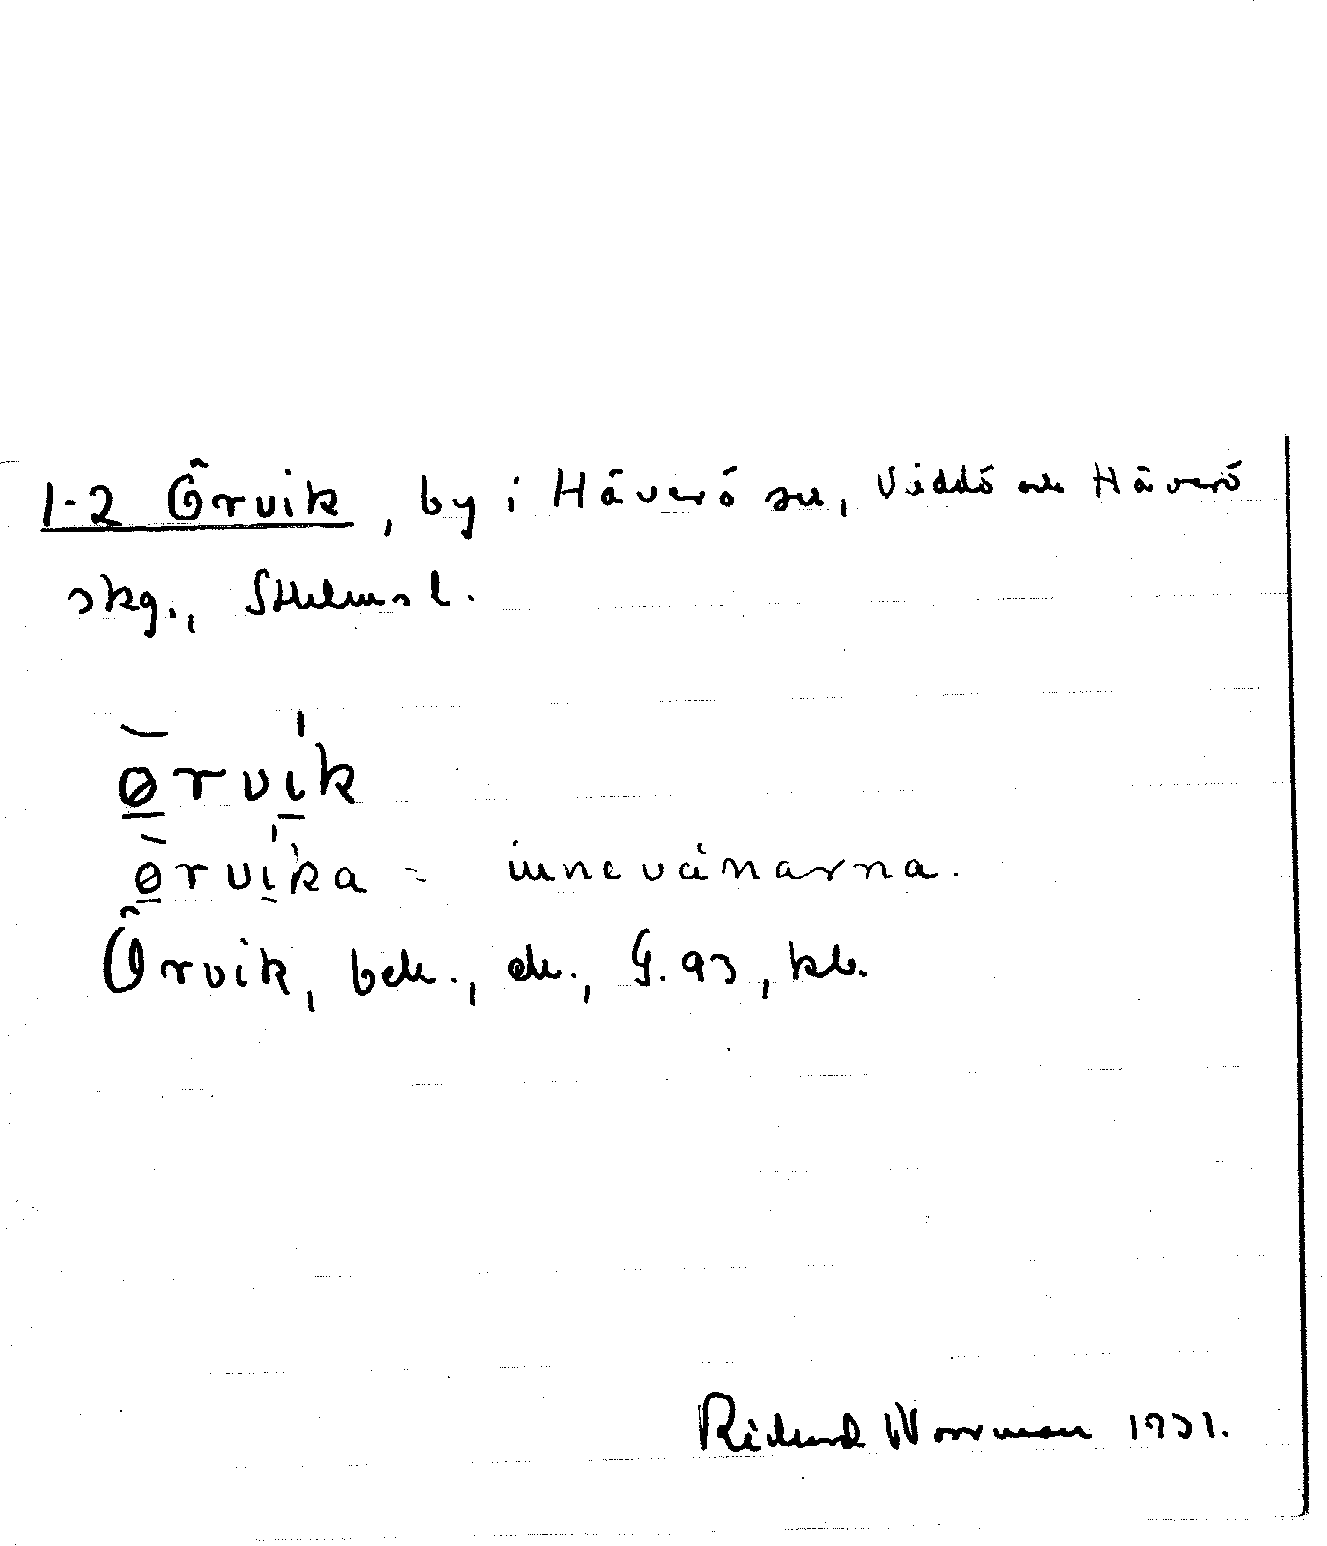 1-2 Örvik, by i Häverö sn, Väddö och Häverö
skg., Sthlms l.
ørvik
ørvika = innevånarna.
Örvik, bek., ek., G. 93, kb.
Richard Norrman 1931.